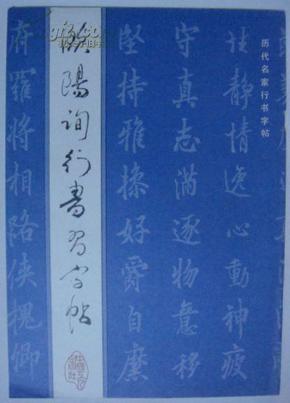 历代名家行书字帖
性静情逸心動神疲
守真志滿逐物意移
堅持雅操好爵自縻
欧陽询行書习字帖
府羅將相路俠槐卿